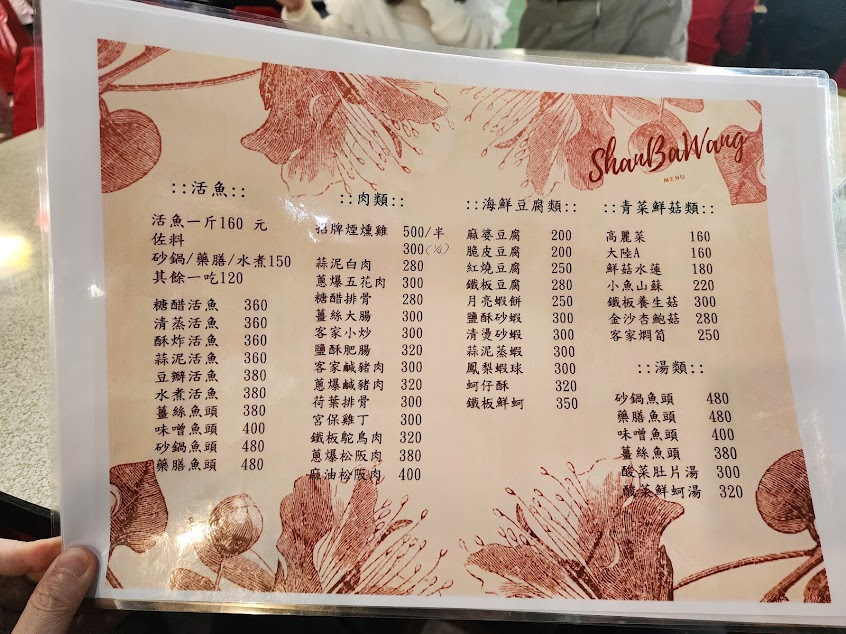 ShanBaWang
MENU
::活魚::
活魚一斤160 元
佐料
砂鍋/藥膳/水煮150
其餘一吃120
糖醋活魚 360
清蒸活魚 360
酥炸活魚 360
蒜泥活魚 360
豆瓣活魚 380
水煮活魚 380
薑絲魚頭 380
味噌魚頭 400
砂鍋魚頭 480
藥膳魚頭 480
::肉類::
招牌煙燻雞 500/半
300(1/4)
蒜泥白肉 280
蔥爆五花肉 300
糖醋排骨 280
薑絲大腸 300
客家小炒 300
鹽酥肥腸 320
客家鹹豬肉 300
蔥爆鹹豬肉 320
荷葉排骨 300
宮保雞丁 300
鐵板鴕鳥肉 320
蔥爆松阪肉 380
麻油松阪肉 400
::海鮮豆腐類::
麻婆豆腐 200
脆皮豆腐 200
紅燒豆腐 250
鐵板豆腐 280
月亮蝦餅 250
鹽酥砂蝦 300
清燙砂蝦 300
蒜泥蒸蝦 300
鳳梨蝦球 300
蚵仔酥 320
鐵板鮮蚵 350
::青菜鮮菇類::
高麗菜 160
大陸A 160
鮮菇水蓮 180
小魚山蘇 220
鐵板養生菇 300
金沙杏鮑菇 280
客家燜筍 250
::湯類::
砂鍋魚頭 480
藥膳魚頭 480
味噌魚頭 400
薑絲魚頭 380
酸菜肚片湯 300
酸菜鮮蚵湯 320